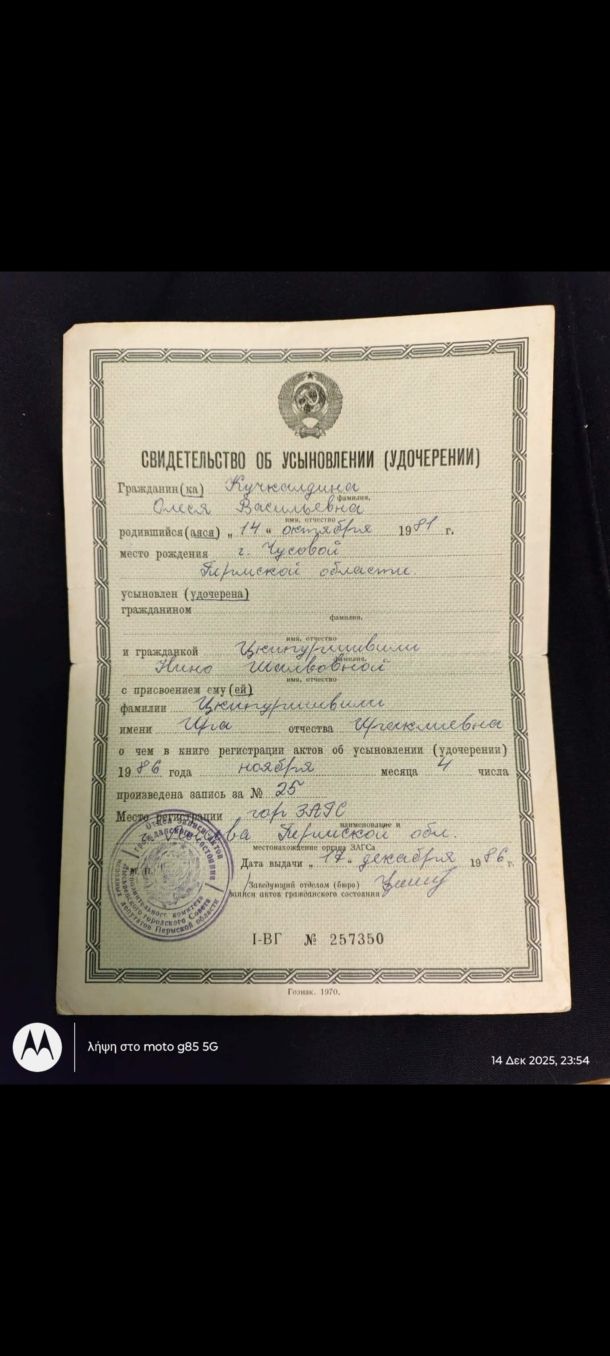 СВИДЕТЕЛЬСТВО ОБ УСЫНОВЛЕНИИ (УДОЧЕРЕНИИ)
Гражданин(ка) Кучкалдина
фамилия,
Олеся Васильевна
имя, отчество
родившийся(аяся) „14“ октября 1981 г.
место рождения г. Чусовой
Пермской области.
усыновлен (удочерена)
гражданином
фамилия,
имя, отчество
и гражданкой Цкипуришвили
фамилия,
Нино Шалвовной
имя, отчество
с присвоением ему(ей)
фамилии Цкипуришвили
имени Ира отчества Ираклиевна
о чем в книге регистрации актов об усыновлении (удочерении)
1986 года ноября месяца 4 числа
произведена запись за № 25
Место регистрации гор ЗАГС
наименование и
Пермской обл.
местонахождение органа ЗАГСа
Дата выдачи „17“ декабря 1986 г.
М. П.
Заведующий отделом (бюро)
записи актов гражданского состояния
I-ВГ № 257350
Гознак. 1970.
λήψη στο moto g85 5G
14 Δεκ 2025, 23:54